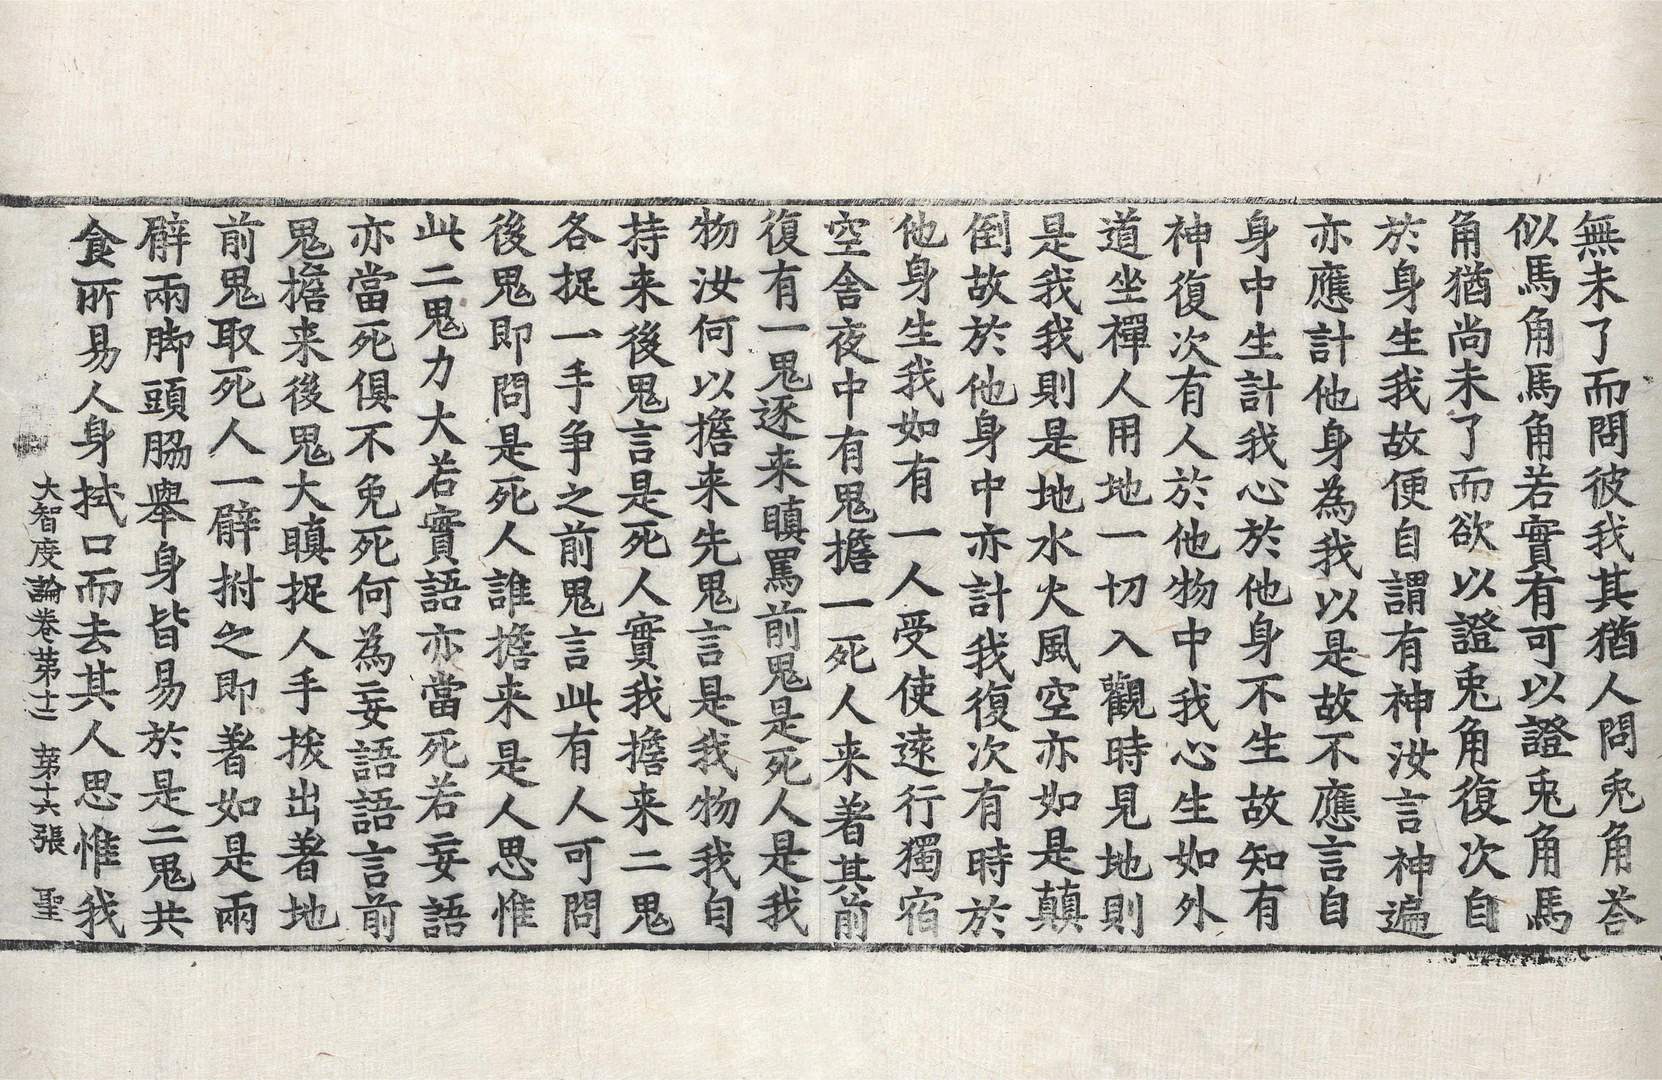 無未了而問彼我其猶人問兎角荅
似馬角馬角若實有可以證兎角馬
角猶尚未了而欲以證兎角復次自
於身生我故便自謂有神汝言神遍
亦應計他身為我以是故不應言自
身中生計我心於他身不生故知有
神復次有人於他物中我心生如外
道坐禪人用地一切入觀時見地則
是我我則是地水火風空亦如是顛
倒故於他身中亦計我復次有時於
他身生我如有一人受使遠行獨宿
空舍夜中有鬼擔一死人来著其前
復有一鬼逐来瞋罵前鬼是死人是我
物汝何以擔来先鬼言是我物我自
持来後鬼言是死人實我擔来二鬼
各捉一手争之前鬼言此有人可問
後鬼即問是死人誰擔来是人思惟
此二鬼力大若實語亦當死若妄語
亦當死俱不免死何為妄語語言前
鬼擔来後鬼大瞋捉人手拔出著地
前鬼取死人一臂拊之即著如是兩
臂兩脚頭脇舉身皆易於是二鬼共
食所易人身拭口而去其人思惟我
大智度論卷第十二 第十六張 聖